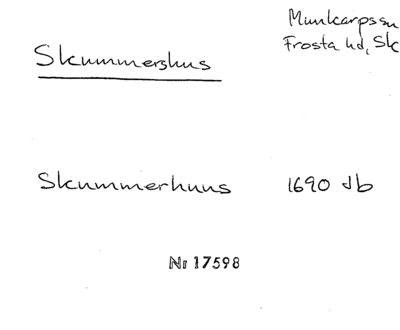 Munkarps sn
Frosta hd, Sk
Skummershus
Skummerhuus 1690 Jb
Nr 17598